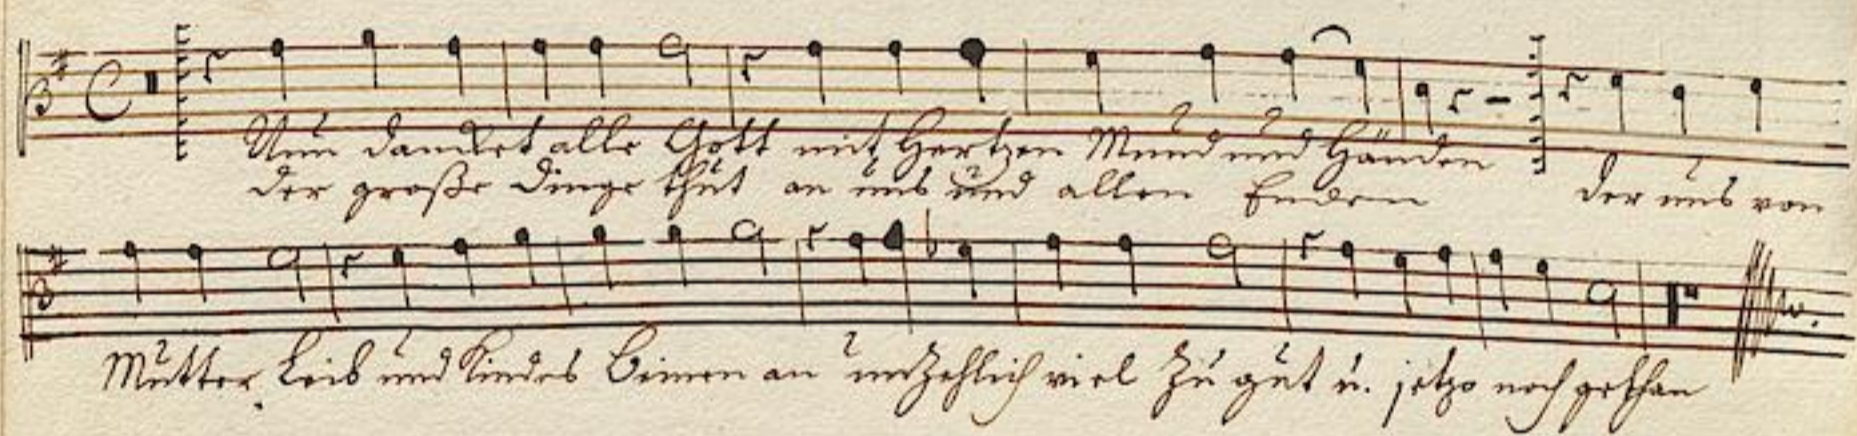 Nun dancket alle Gott mit Hertzen Mund und Händen
der große Dinge thut an uns und allen Enden der uns von
Mutter Leib und Kindes Beinen an unzehlich viel zu gut u. jetzo noch gethan